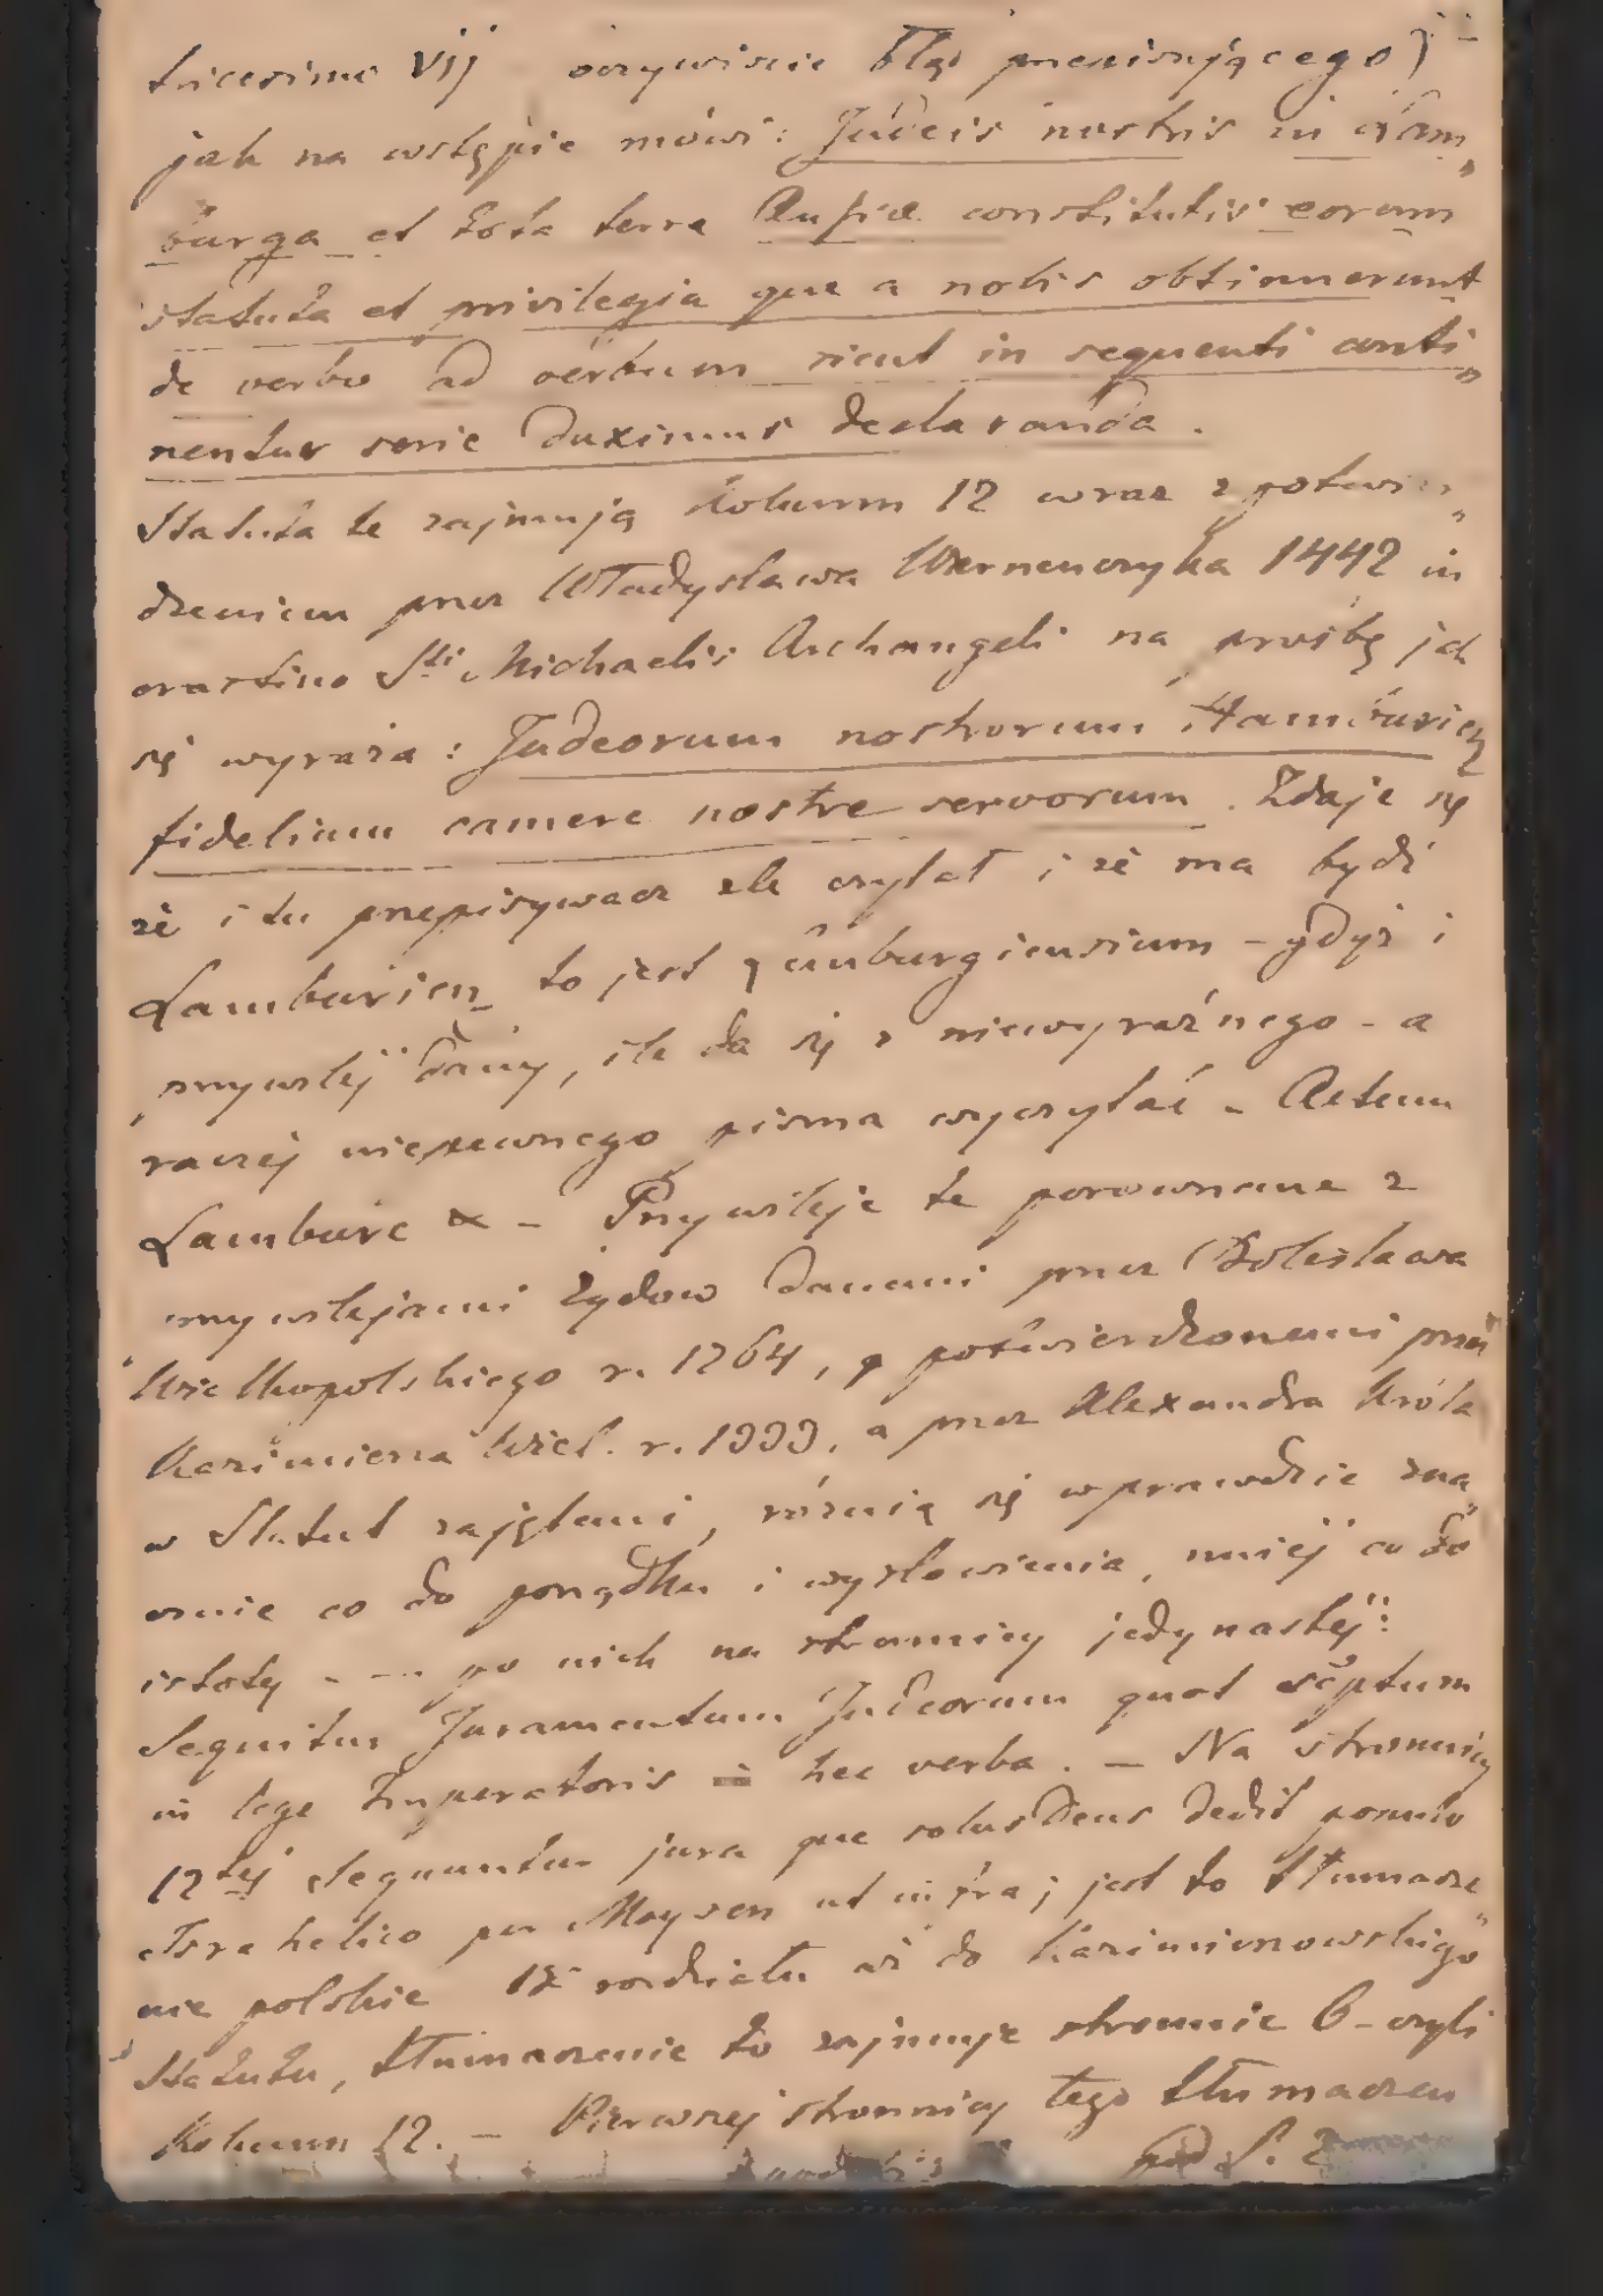 tricesimo vij oczywiście błąd przepisującego)
jak na wstępie mówi: Judeis nostris in Lam„
burga et tota terra Rusie constitutis eorum
statuta et privilegia que a nobis obtinuerunt
de verbo ad verbum sicut in sequenti conti„
nentur serie duximus declaranda.
Statuta te zajmują kolumn 12 wraz z potwier„
dzeniem przez Władysława Warneńczyka 1442 in
crastino Sti Michaelis Archangeli na prośbę jak
się wyraża: Judeorum nostrorum Hamburien
fidelium camere nostre servorum. Zdaje się
że i tu przepisywacz źle czytał i że ma bydź
Lamburien to jest Lamburgiensium – gdyż i
przywilej dany, ile da się z niewyraźnego – a
raczej niepewnego pisma wyczytać – Actum
Lamburc – Przywileje te porownane z
przywilejami Żydow danemi przez Bolesława
Wielkopolskiego r. 1264, potwierdzonemi przez
Kazimierza Wiel. r. 1333, a przez Alexandra Króla
w Statut zajętemi, różnią się wprawdzie zna„
cznie co do porządku i wysłowienia, mniej co do
istoty – — po nich na stronnicy jedynastej:
Sequitur Juramentum Judeorum quot scriptum
in lege Imperatoris hec verba. – Na stronnicy
12tej Sequuntur jura que solus Deus dedit populo
Israhelico per Moysen ut infra; jest to tłumacze„
nie polskie rozdziału aż do Kazimierzowskiego
Statutu, tłumaczenie to zajmuje stronnic 6 – czyli
Kolumn 12. – Pierwszej stronnicy tego tłumaczen